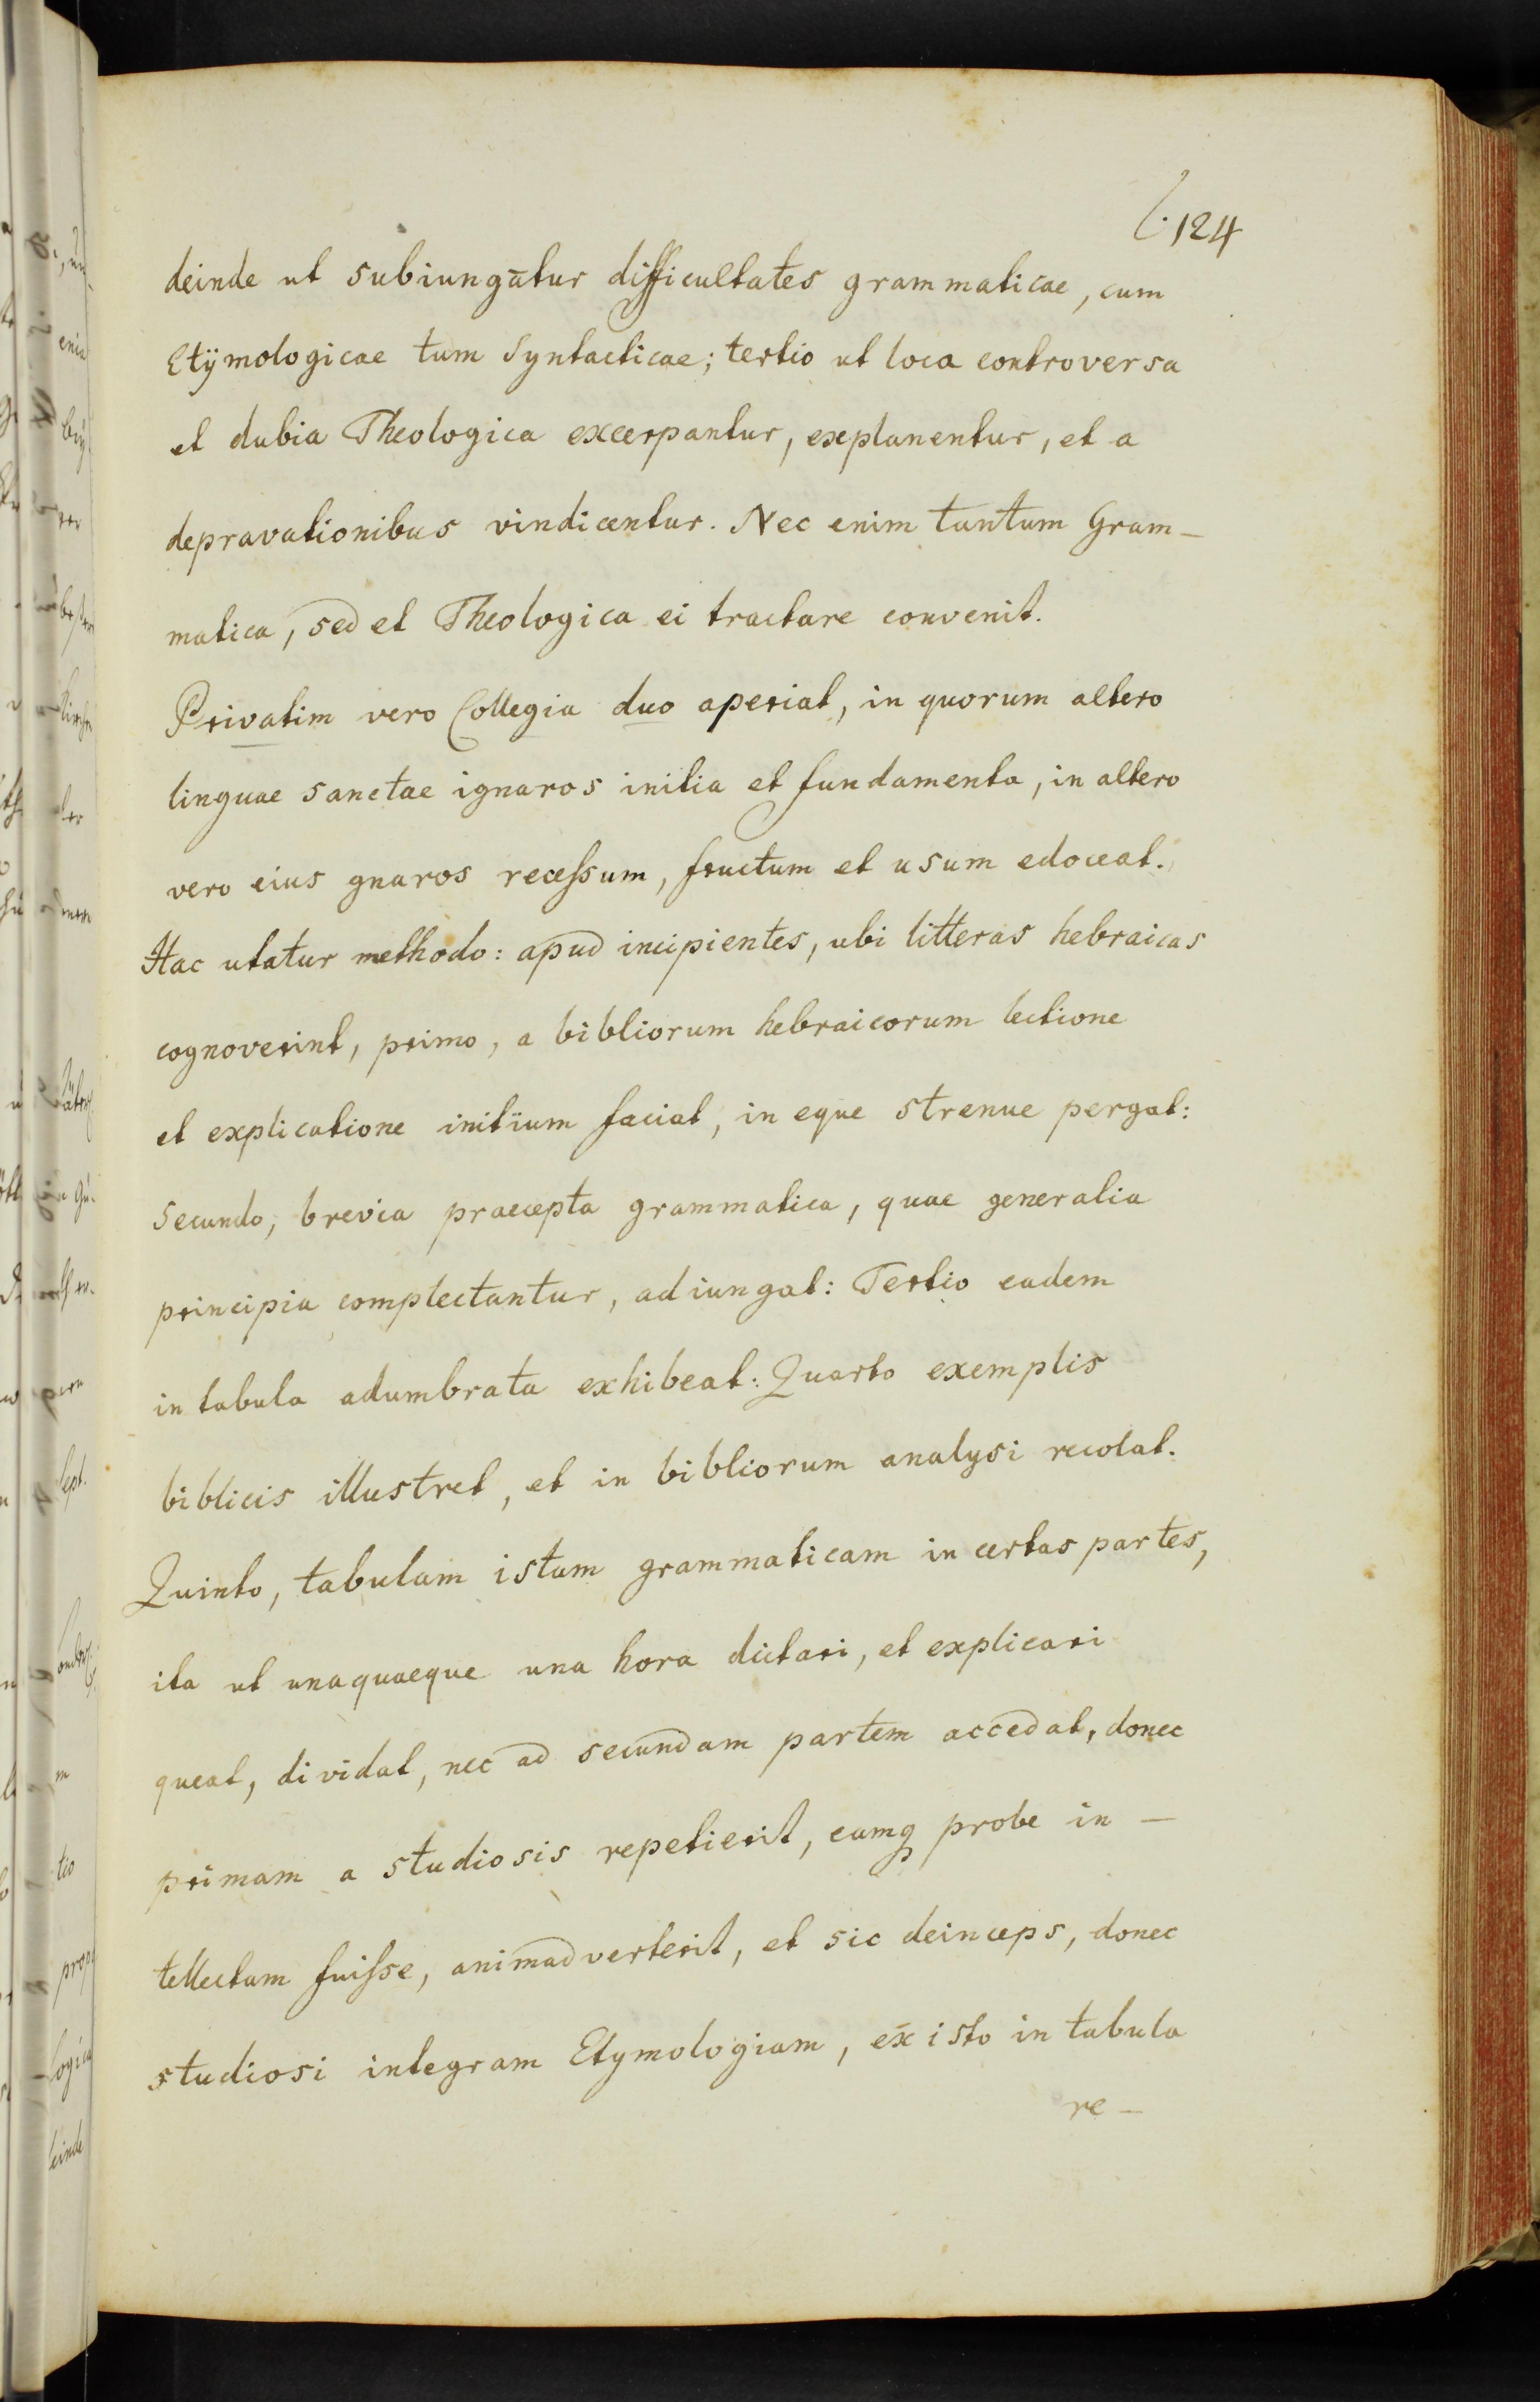 l. 124
deinde ut subiungātur difficultates grammaticae, cum
Etÿmologicae tum Syntacticae; tertio ut loca controversa
et dubia Theologica excerpantur, explanentur, et a
depravationibus vindicentur. Nec enim tantum Gram-
matica, sed et Theologica ei tractare convenit.
Privatim vero Collegia duo aperiat, in quorum altero
linguae sanctae ignaros initia et fundamenta, in altero
vero eius gnaros recessum, fructum et usum edoceat.
Hac utatur methodo: apud incipientes, ubi litteras hebraicas
cognoverint, primo, a bibliorum hebraicorum lectione
et explicatione initium faciat, in eque strenue pergat:
secundo, brevia praecepta grammatica, quae generalia
principia complectantur, adiungat: Tertio eadem
in tabula adumbrata exhibeat: Quarto exemplis
biblicis illustret, et in bibliorum analysi recolat.
Quinto, tabulam istam grammaticam in certas partes,
ita ut unaquaeque una hora dictari, et explicari
queat, dividat, nec ad secundam partem accedat, donec
primam a studiosis repetierit, eamq probe in-
tellectam fuisse, animadverterit, et sic deinceps, donec
studiosi integram Etymologiam, ex isto in tabula
re-